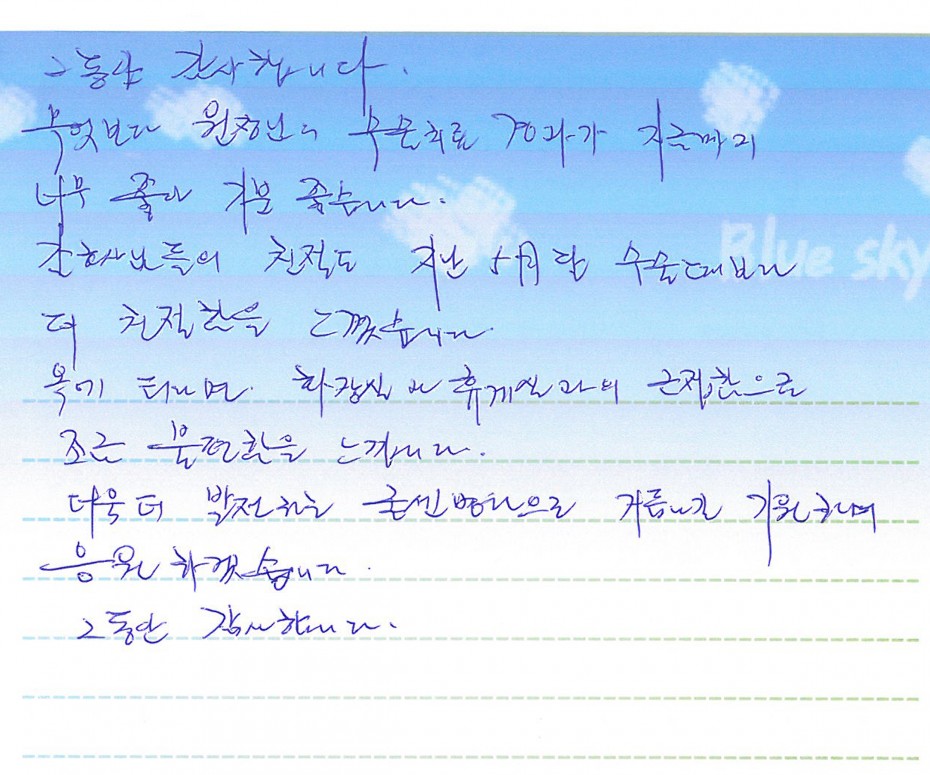 그동안 감사합니다.
무엇보다 원장님의 수술치료 경과가 지금까지
너무 좋아 기분 좋습니다.
간호사님들의 친절도 지난 5月달 수술때보다
Blue sky
더 친절함을 느꼈습니다.
옥에 티라면 화장실과 휴게실과의 근접함으로
조금 불편함을 느낍니다.
더욱 더 발전하는 굿센병원으로 거듭나길 기원하며
응원하겠습니다.
그동안 감사합니다.